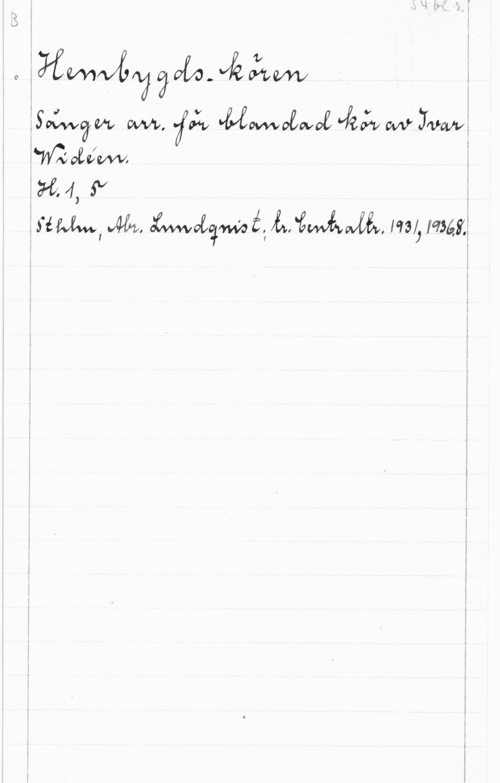 B
Hembygds-kören
Sånger arr. för blandad kör av Ivar
Widéen.
H. 1, 5
Sthlm, Abr. Lundqvist; tr. Centraltr. 1931, 1936. 8.